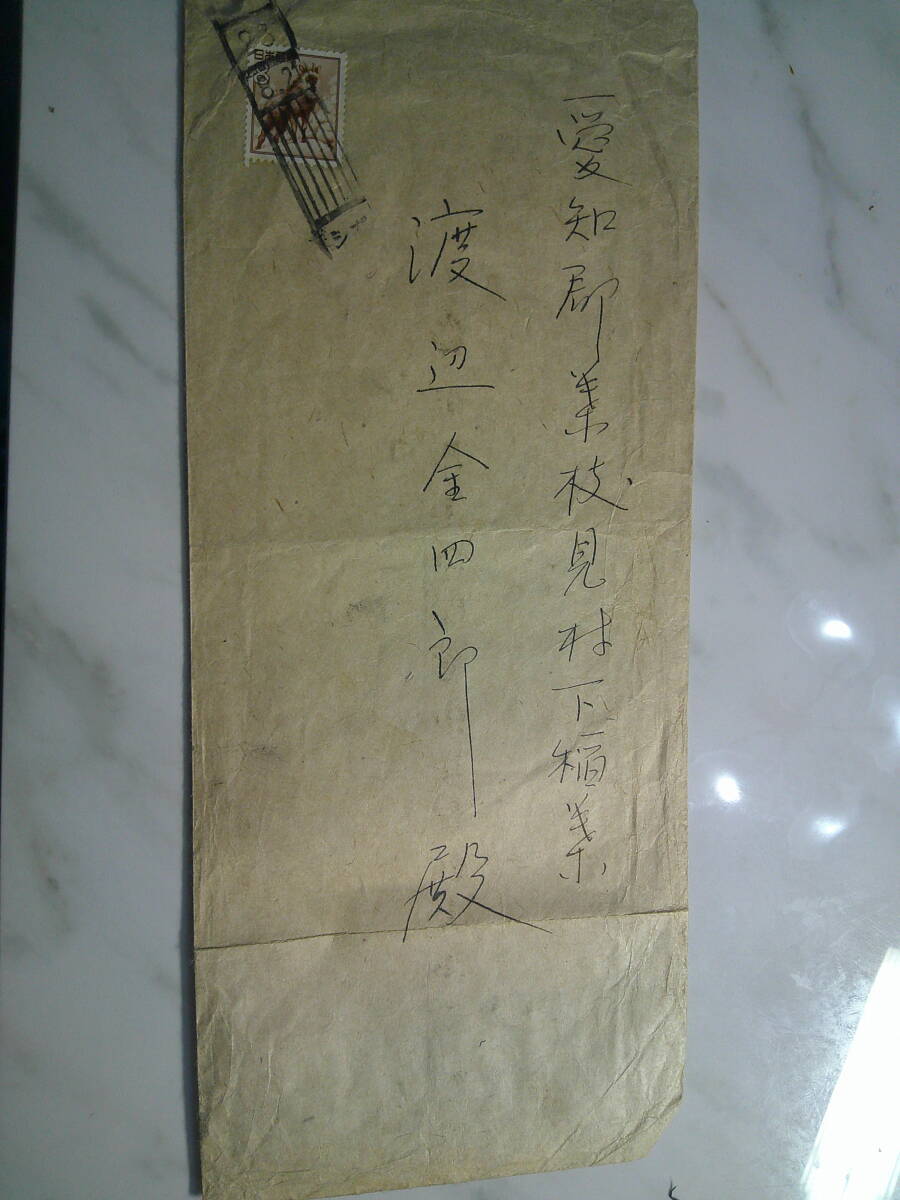 愛知郡葉枝見村下稲葉
渡辺金四郎殿
日本郵便